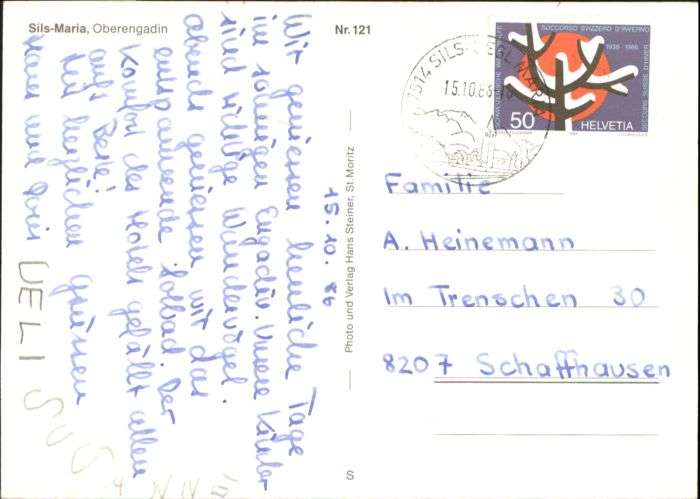 Sils-Maria, Oberengadin
Nr. 121
15.10.86
Wir geniessen herrliche Tage
im sonnigen Engadin. Unsere Kinder
sind richtige Wandervögel.
abends geniessen wir das
entspannende Solbad. Der
Komfort des Hotels gefällt allen
aufs Beste!
Mit herzlichen Grüssen
Hans und Doris
UELI
SUSANNE
Photo und Verlag Hans Steiner, St. Moritz
S
7514 SILS
15.10.86
SOCCORSO SVIZZERO D'INVERNO
1936-1986
SECOURS SUISSE D'HIVER
SCHWEIZERISCHE WINTERHILFE
50
HELVETIA
Familie
A. Heinemann
Im Trenschen 30
8207 Schaffhausen